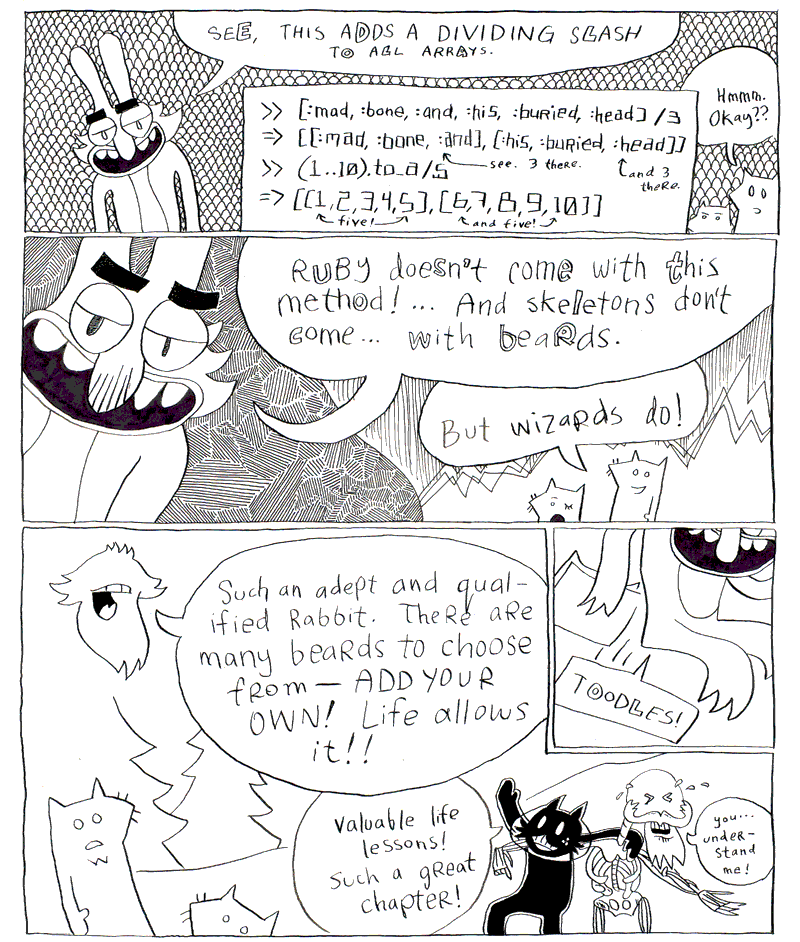 SEE, THIS ADDS A DIVIDING SLASH
TO ALL ARRAYS.
>> [:mad, :bone, :and, :his, :buried, :head] /3
=> [[:mad, :bone, :and], [:his, :buried, :head]]
see. 3 there.
and 3
there.
>> (1..10).to_a/5
=> [[1,2,3,4,5],[6,7,8,9,10]]
five!
and five!
Hmmm.
Okay??
RUBY doesn't come with this
method!... And skeletons don't
come... with beards.
But wizards do!
Such an adept and qual-
ified Rabbit. There are
many beards to choose
from — ADD YOUR
OWN! Life allows
it!!
TOODLES!
Valuable life
lessons!
Such a great
chapter!
you...
under-
stand
me!